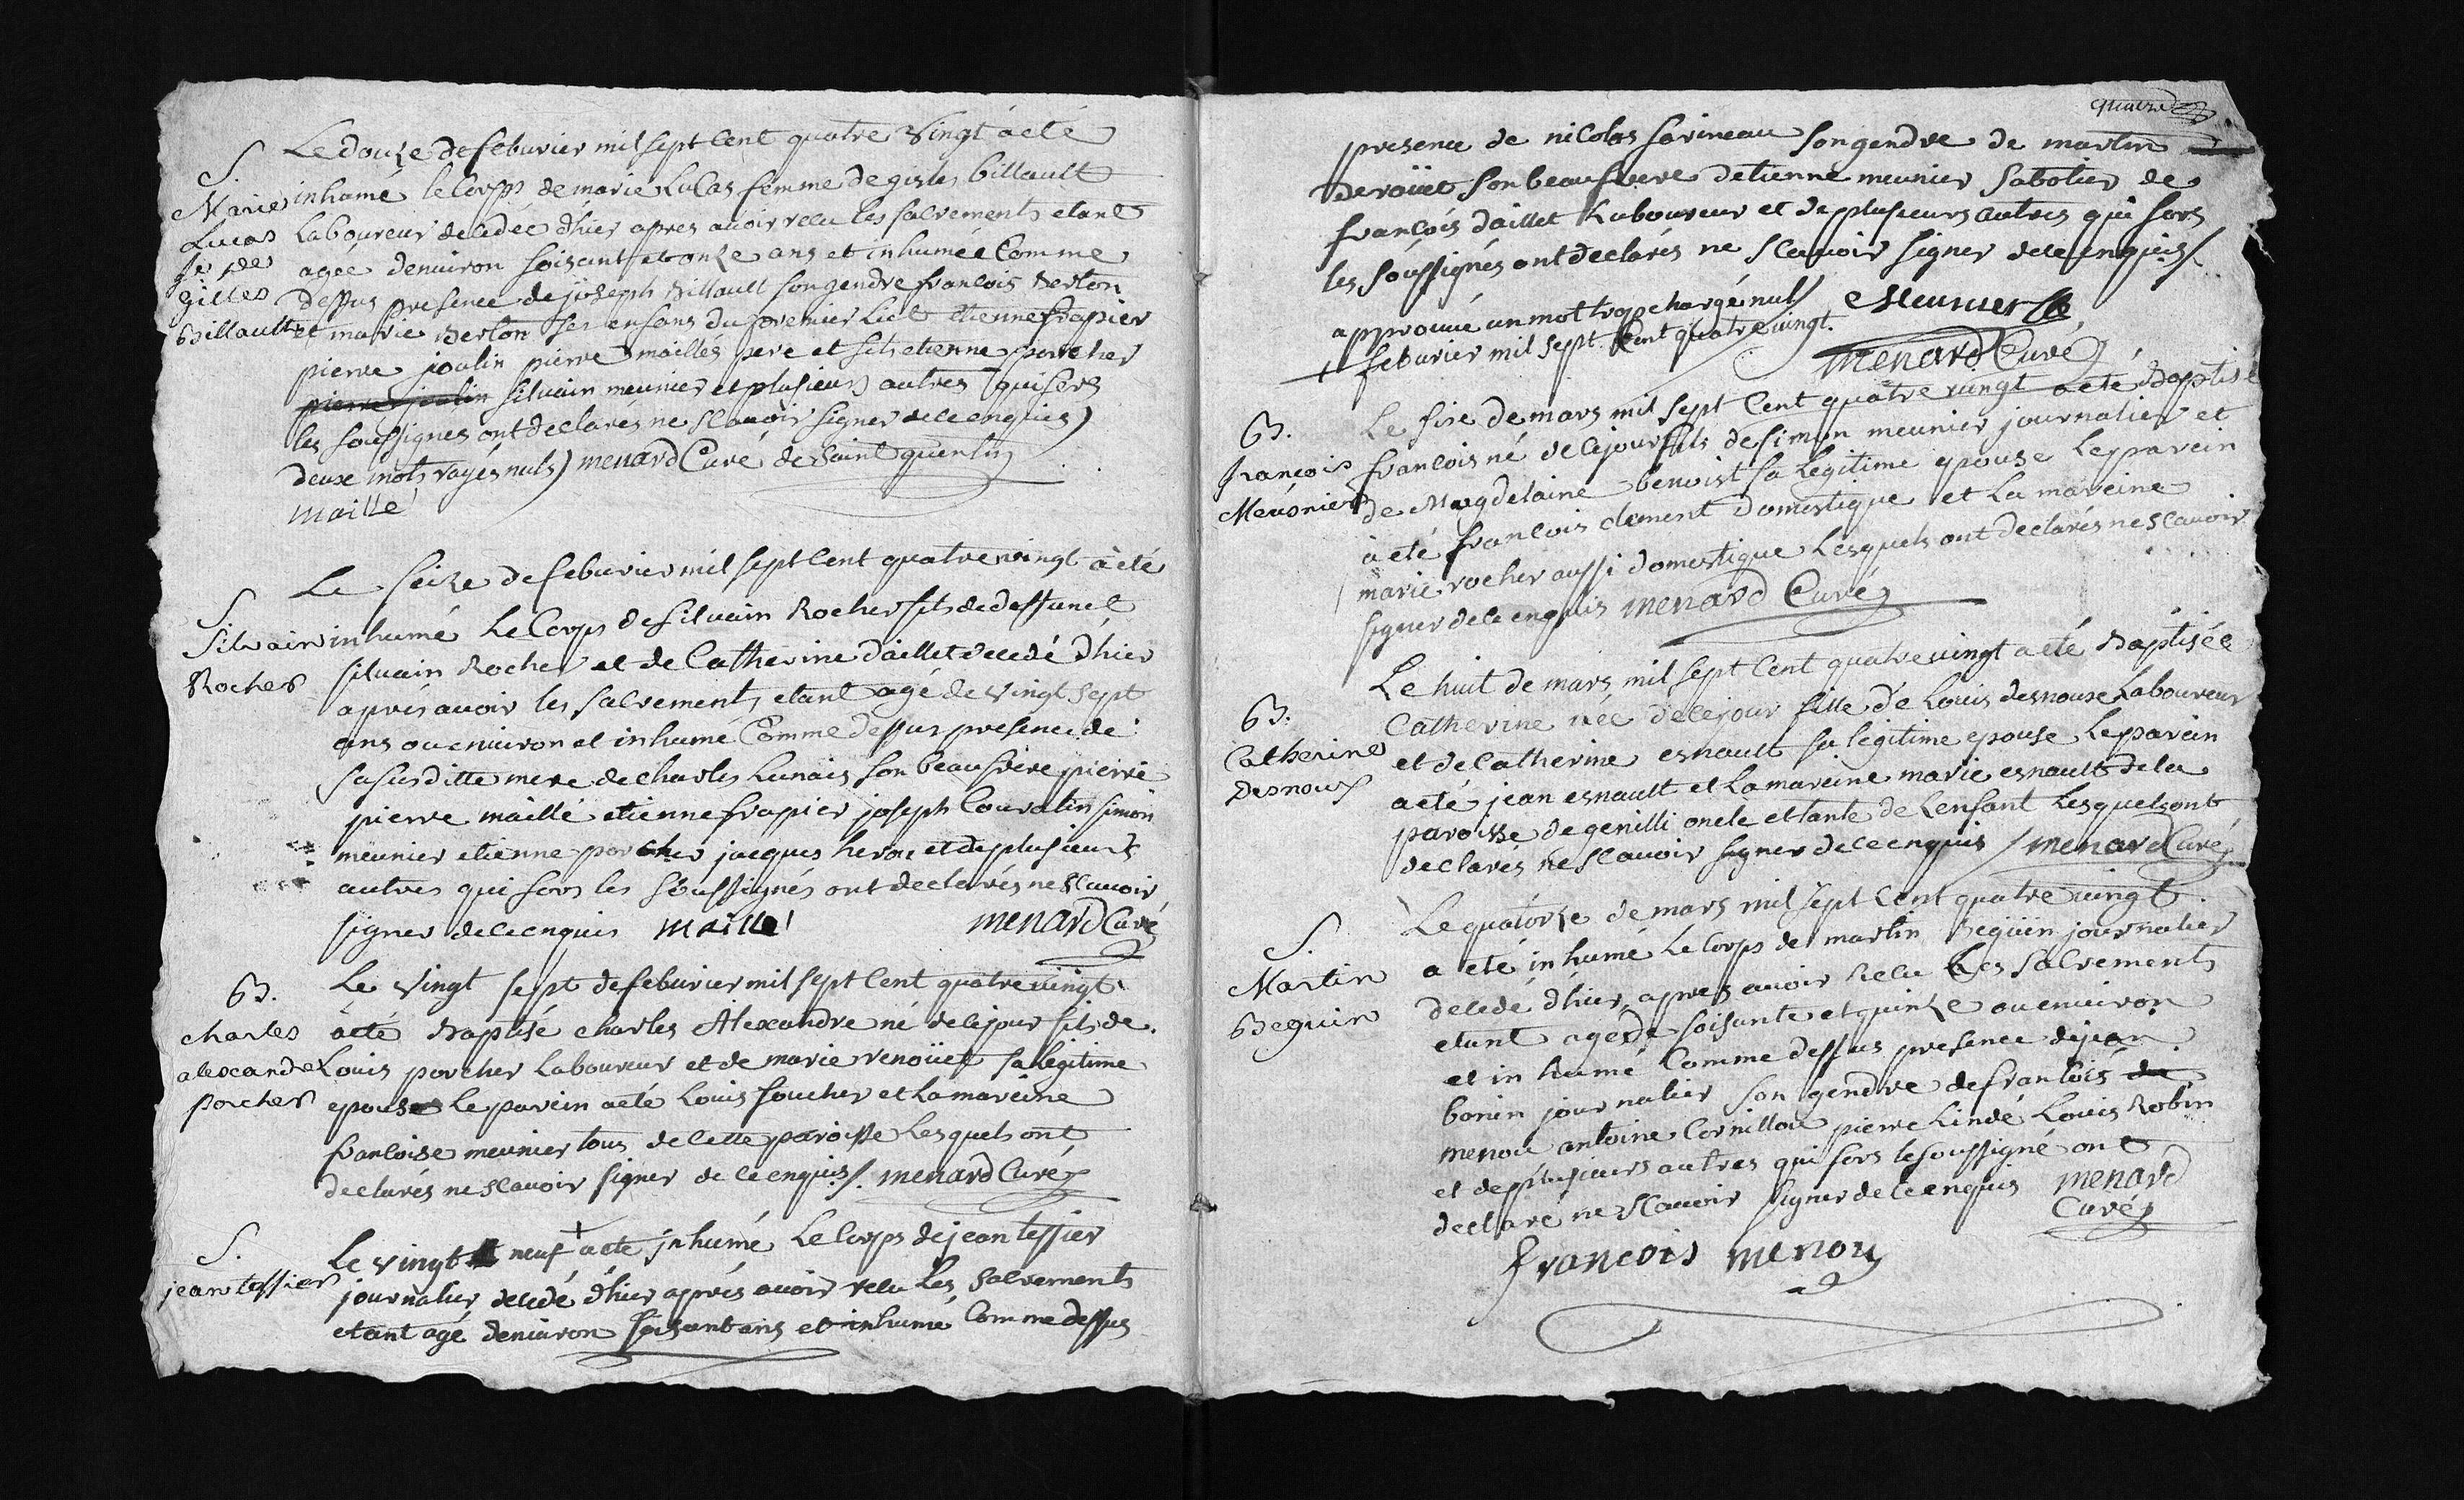 Le douze de feburier mil sept cent quatre vingt à été
S.
Marie
Lucas
fe de
Gilles
Billault
inhumé le corps de marie Lucas femme de gisles billault
Laboureur decedée d'hier apres avoir recu les sacrements etant
agée denviron soisant et onze ans et inhumée Comme
dessus presence de joseph Billault son gendre francois Berton
et marie Berton ses enfans du premier Lict etienne frapier
pierre joulin pierre maillés pere et fils etienne porcher
pierre joulin silvain meunier et plusieurs autres qui fors
les soussignes ont declarés ne scavoir signer de ce enquies)
deux mots rayés nuls) menard Curé de Saint quentin
maillé
Le seize de feburier mil sept cent quatre vingt à été
S.
Silvain
Rocher
inhumé Le Corps de silvain Rocher fils de deffunct
silvain Rocher et de Catherine daillet decedé d'hier
aprés avoir les sacrements etant agé de vingt sept
ans ou environ et inhumé Comme dessus presence de
sa susditte mere de charles Lunais son beau frere pierre
pierre maillé etienne frapier joseph Couratin simon
meunier etienne porcher jacques herou et de plusieurs
autres qui fors les soussignés ont declarés ne scavoir
signer de ce enquis maillé menard Curé
Le vingt sept de feburier mil sept cent quatre vingt
B.
charles
alexandre
porcher
àeté Baptisé charles Alexandre né de ce jour fils de
Louis porcher Laboureur et de marie renoüet sa legitime
epouse Le parein aeté Louis foucher et La mareine
francoise meunier tous de cette paroisse Lesquels ont
declarés ne scavoir signer de ce enquis/. menard Curé
S.
jean tessier
Le vingt neuf + aeté inhumé Le Corps de jean tessier
journalier decedé d'hier aprés avoir recu Les sacrements
etant agé denviron soisant ans et inhumé Comme dessus
quatre
presence de nicolas sarineau son gendre de martin
Deroüet son beau frere detienne meunier sabotier de
francois daillet Laboureur et de plusieurs autres qui fors
les soussignés ont declarés ne scavoir signer de ce enquis/.
approuvé un mot trop chargé nul/ Meunier
+ feburier mil sept cent quatre vingt.
menard Curé
Le sixe de mars mil sept cent quatre vingt a eté Baptisé
B.
francois
Meusnier
francois né de ce jour fils de simon meunier journalier et
de Magdelaine benoist sa Legitime epouse Le parein
à eté francois clement domestique et La mareine
marie rocher aussi domestique Lesquels ont declarés ne scavoir
signer de ce enquis menard Curé
Le huit de mars mil sept cent quatre vingt a eté Baptisée
B.
Catherine
Desnoux
Catherine née de ce jour fille de Louis desnoux Laboureur
et de Catherine esnault sa legitime epouse Le parein
aeté jean esnault et La mareine marie esnault de la
paroisse de genilli oncle et tante de Lenfant Lesquels ont
declarés ne scavoir signer de ce enquis / menard Curé
Le quatorze de mars mil sept cent quatre vingt
S.
Martin
Beguin
a eté inhumé Le Corps de martin Beguin journalier
decedé d'hier apres avoir Recu Les sacrements
etant agé de soisante et quinze ou environ
et inhumé Comme dessus presence de jean
bonin journalier son gendre de francois de
menou antoine Cornillou pierre Lindé Louis Robin
et de plusieurs autres qui fors le soussigné ont
declaré ne scavoir signer de ce enquis menard
Curé
francois menou